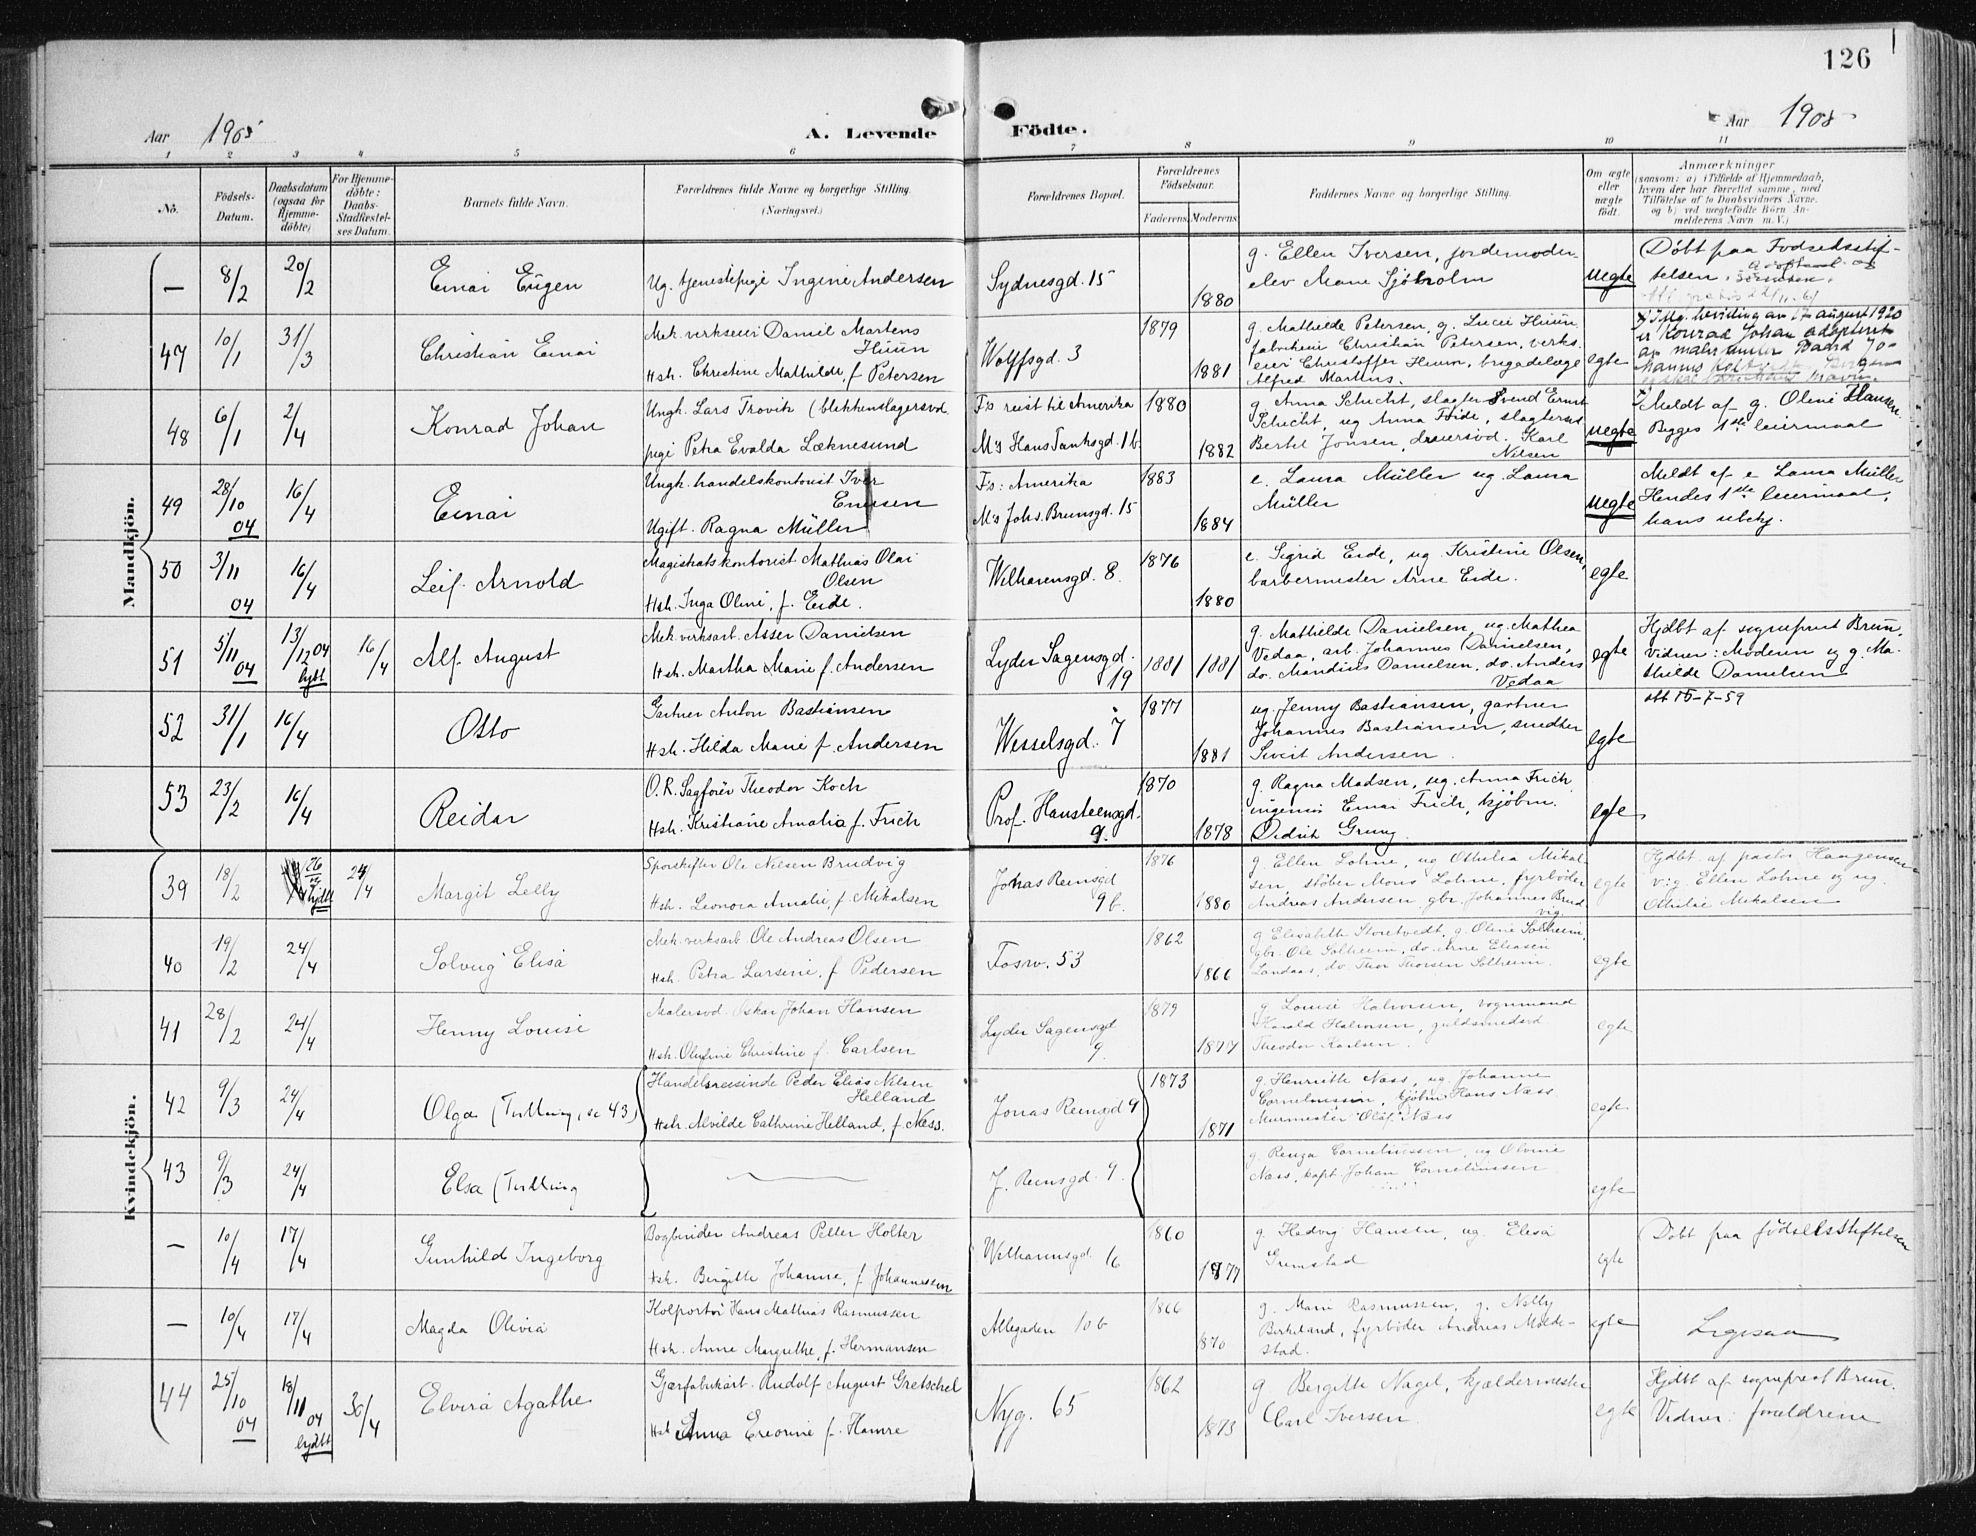 126
Aar 1905 A. Levende Födte. Aar 1905
1 2 3 4 5 6 7 8 9 10 11
No.
Födsels-Datum.
Daabsdatum (ogsaa for Hjemme-döbte)
For Hjemme-döbte: Daabs-Stadfæstel-ses Datum.
Barnets fulde Navn.
Forældrenes fulde Navne og borgerlige Stilling. (Næringsvei.)
Forældrenes Bopæl.
Forældrenes Födselsaar.
Faderens Moderens
Faddernes Navne og borgerlige Stilling.
Om ægte eller uægte födt.
Anmærkninger
(saasom: a) i Tilfælde af Hjemmedaab, hvem der har forrettet samme, med Tilföielse af to Daabsvidners Navne. og b) ved uægtefödte Börn An-melderens Navn m. V.)
Mandkjön.
— 8/2 20/2 Einar Eugen
Ug. tjenestepige Ingine Andersen
Sydnesgd. 15 1880
g. Ellen Iversen, jordemoder
elev Marie Sjöholm
uegte
Döbt paa Fodselsstif-
telsen.
47 10/1 31/3 Christian Einar
Mek. verkseier Daniel Martens
Huun
Hst. Christine Mathilde, f. Petersen
Wolffsgd. 3 1879 1881
g. Mathilde Petersen, g. Lucie Huun
fabrikeier Christian Petersen, verks.
eier Christoffer Huun, brigadelæge
Alfred Martens.
egte
x) Iflg. bevilling av 17 august 1920
er Konrad Johan adopteret
av
48 6/1 2/4 Konrad Johan
Ungk. Lars Trovik (blikkenslagersvd.
pige Petra Evalda Læknesund
F's reist til Amerika
M's Hans Tanksgd. 1b 1880 1882
g. Anna Schicht, slagter Svend Ernst
Schicht, ug Anna Eide, slagtersvd
Bertel Jonsen, Karl
Nilsen
uegte
x) Meldt af g. Oline Hansen.
Begges 1ste leiermaal
49 28/10 04 16/4 Einar
Ungk. handelskontorist Iver
Ugift. Ragna Müller
F's: Amerika
M's Johs. Brunsgd. 15 1883 1884
e. Laura Müller ug. Laura
Müller
uegte
Meldt af e Laura Müller
Hendes 1ste leiermaal,
hans ubekj.
50 3/11 04 16/4 Leif Arnold
Magistratskontorist Mathias Olai
Olsen
Hst. Inga Oline, f. Eide.
Welhavensgd. 8. 1876 1880
e. Sigrid Eide, ug Kristine Olsen,
barbermester Arne Eide.
egte
51 5/11 04 13/12 04 hjdbt 16/4 Alf August
Mek. verksarb. Asser Danielsen
Hst. Martha Marie f. Andersen
Lyder Sagensgd.
19 1881 1881
g. Mathilde Danielsen, ug. Mathea
Vedaa, arb. Johannes Danielsen,
do. Mandius Danielsen, do. Anders
Vedaa
egte
Hjdbt af sogneprest Brun.
Vidner: Moderen og g. Ma-
thilde Danielsen
52 31/1 16/4 Otto
Gartner Anton Bastiansen
Hst. Hilda Marie f. Andersen
Wesselsgd. 7 1877 1881
ug. Jenny Bastiansen, gartner
Johannes Bastiansen, smedker
Sivert Andersen
egte
att 15-7-59
53 23/2 16/4 Reidar
O.R. Sagförer Theodor Koch
Hst. Kristiane Amalia f. Frich
Prof. Hansteensgd.
9. 1870 1878
g. Ragna Madsen, ug. Anna Frich
ingeniör Einar Frich, kjöbm.
Didrik Grung
egte
Kvindekjön.
39 18/2 26 hjdbt 24/4 Margit Lelly
Sporskifter Ole Nilsen Brudvig
Hst. Leonora Amalie, f. Mikalsen
Jonas Reinsgd
9b. 1876 1880
g. Ellen Lohne, ug Othilia Mikal-
sen, stöber Mons Lohne, fyrböder
Andreas Andersen, gbr. Johannes Brud-
vig
egte
Hjdbt af pastor Haagensen
Vig. Ellen Lohne og ug.
Othilie Mikalsen
40 19/2 24/4 Solveig Elisa
Mek. verksarb. Ole Andreas Olsen
Hst. Petra Larsine, f. Pedersen
Fosw. 53 1862 1866
g Elisabeth Storetvedt, g. Oline Solheim,
gbr. Ole Solheim, do. Arne Eliasen
Landaas, do. Thor Thorsen Solheim.
egte
41 28/2 24/4 Henny Louise
Malersvd. Oskar Johan Hansen
Hst. Olufine Christine f. Carlsen
Lyder Sagensgd
9. 1879 1877
g. Louise Halvorsen, vognmand
Harald Halvorsen, guldsmedsvd
Theodor Karlsen.
egte
42 9/3 24/4 Olga (Tvilling, se 43)
Handelsreisende Peder Elias Nilsen
Helland
Hst. Alvilde Cathrine Helland, f. Næss.
Jonas Reinsgd 9 1873 1871
g. Henriette Næss, ug. Johanne
Corneliussen, kjöbm. Hans Næss
Murmester Olaf Næss
egte
43 9/3 24/4 Elsa (Tvilling
J. Reinsgd. 9.
g. Renza Corneliussen, ug Olvine
Næss, kapt. Johan Corneliussen
egte
— 10/4 17/4 Gunhild Ingeborg
Bogbinder Andreas Petter Holter
Hst. Bergitte Johanne, f. Johannessen
Welhavnsgd. 16 1860 1877
g. Hedvig Hansen, ug. Elesa
Grimstad
egte
Döbt paa födselsstiftelsen
— 10/4 17/4 Magda Olivia
Kolportör Hans Mathias Rasmussen
Hst. Anne Margrethe, f. Hermansen
Allegaden 10b 1866 1870
g. Marie Rasmussen, g. Nelly
Birkeland, fyrböder Andreas Molde-
stad.
egte
Ligesaa
44 25/10 04 18/11 04 hjdbt 30/4 Elvira Agathe
Gjærfabrikarb. Rudolf August Gretschel
Hst Anna Ereorine f. Hamre
Nyg. 65 1862 1873
g Bergitte Nagel, kjældermester
Carl Iversen.
egte
Hjdbt af sogneprest Brun.
Vidner: forældrene